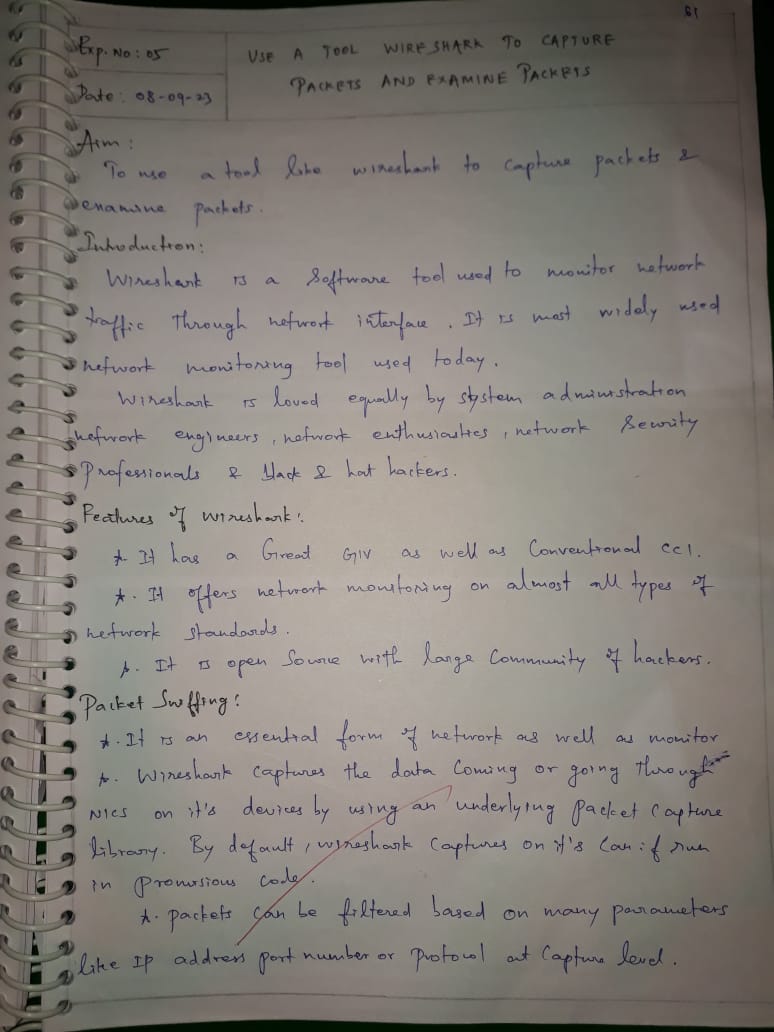 19
Exp. No : 05
USE A TOOL WIRESHARK TO CAPTURE
PACKETS AND EXAMINE PACKETS
Date : 08-09-23
Aim :
To use a tool like wireshark to capture packets &
examine packets.
Introduction :
Wireshark is a Software tool used to monitor network
traffic through network interface. It is most widely used
network monitoring tool used today.
Wireshark is loved equally by system administration
network engineers, network enthusiasties, network Security
Professionals & black & hat hackers.
Features of wireshark :
* It has a Great GIV as well as Conventional CCI.
*. It offers network monitoring on almost all types of
network standards.
*. It is open Source with large Community of hackers.
Packet Sniffing :
*. It is an essential form of network as well as monitor
*. Wireshark captures the data coming or going through
NICS on it's devices by using an underlying packet capture
library. By default, wireshark captures on it's Can if run
in promisious code.
*. packets can be filtered based on many parameters
like IP address port number or protocol at Capture level.